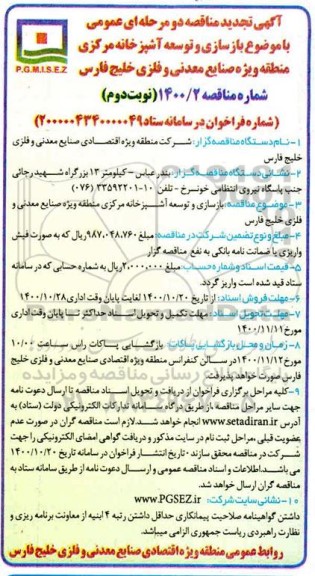 آگهی تجدید مناقصه دو مرحله ای عمومی
با موضوع بازسازی و توسعه آشپزخانه مرکزی
منطقه ویژه صنایع معدنی و فلزی خلیج فارس
P.G.M.I.S.E.Z
شماره مناقصه ۱۴۰۰/۲ (نوبت دوم)
(شماره فراخوان در سامانه ستاد ۲۰۰۰۰۰۴۳۴۰۰۰۰۴۹)
۱- نام دستگاه مناقصه گزار: شرکت منطقه ویژه اقتصادی صنایع معدنی و فلزی
خلیج فارس
۲- نشانی دستگاه مناقصه گزار: بندرعباس - کیلومتر ۱۳ بزرگراه شهید رجائی
جنب پاسگاه نیروی انتظامی خونسرخ - تلفن ۱۰-۳۳۵۹۲۲۰۱ (۰۷۶)
۳- موضوع مناقصه: بازسازی و توسعه آشپزخانه مرکزی منطقه ویژه صنایع معدنی و
فلزی خلیج فارس
۴- مبلغ و نوع تضمین شرکت در مناقصه: مبلغ ۹۸۷،۰۴۸،۷۶۰ ریال که به صورت فیش
واریزی یا ضمانت نامه بانکی به نفع مناقصه گزار
۵- قیمت اسناد و شماره حساب: مبلغ ۲،۰۰۰،۰۰۰ ریال به شماره حسابی که در سامانه
ستاد قید شده است واریز گردد.
۶- مهلت فروش اسناد: از تاریخ ۱۴۰۰/۱۰/۲۰ لغایت پایان وقت اداری ۱۴۰۰/۱۰/۲۸
۷- مهلت تحویل اسناد: مهلت تکمیل و تحویل اسناد حداکثر تا پایان وقت اداری
مورخ ۱۴۰۰/۱۱/۱۱
۸- زمان و محل بازگشایی پاکات: بازگشایی پاکات راس ساعت ۱۰/۰۰
مورخ ۱۴۰۰/۱۱/۱۲ در سالن کنفرانس منطقه ویژه اقتصادی صنایع معدنی و فلزی خلیج
فارس صورت خواهد پذیرفت
۹- کلیه مراحل برگزاری فراخوان از دریافت و تحویل اسناد مناقصه تا ارسال دعوت نامه
جهت سایر مراحل مناقصه از طریق درگاه سامانه تدارکات الکترونیکی دولت (ستاد) به
آدرس www.setadiran.ir انجام خواهد شد. لازم است مناقصه گران در صورت عدم
عضویت قبلی، مراحل ثبت نام در سایت مذکور و دریافت گواهی امضای الکترونیکی را جهت
شرکت در مناقصه محقق سازند - تاریخ انتشار فراخوان در سامانه تاریخ ۱۴۰۰/۱۰/۲۰
می باشد. اطلاعات و اسناد مناقصه عمومی و ارسال دعوت نامه از طریق سامانه ستاد به
مناقصه گران ارسال خواهد شد.
۱۰- نشانی سایت شرکت: www.PGSEZ.ir
داشتن گواهینامه صلاحیت پیمانکاری حداقل داشتن رتبه ۴ ابنیه از معاونت برنامه ریزی و
نظارت راهبردی ریاست جمهوری الزامی میباشد.
روابط عمومی منطقه ویژه اقتصادی صنایع معدنی و فلزی خلیج فارس